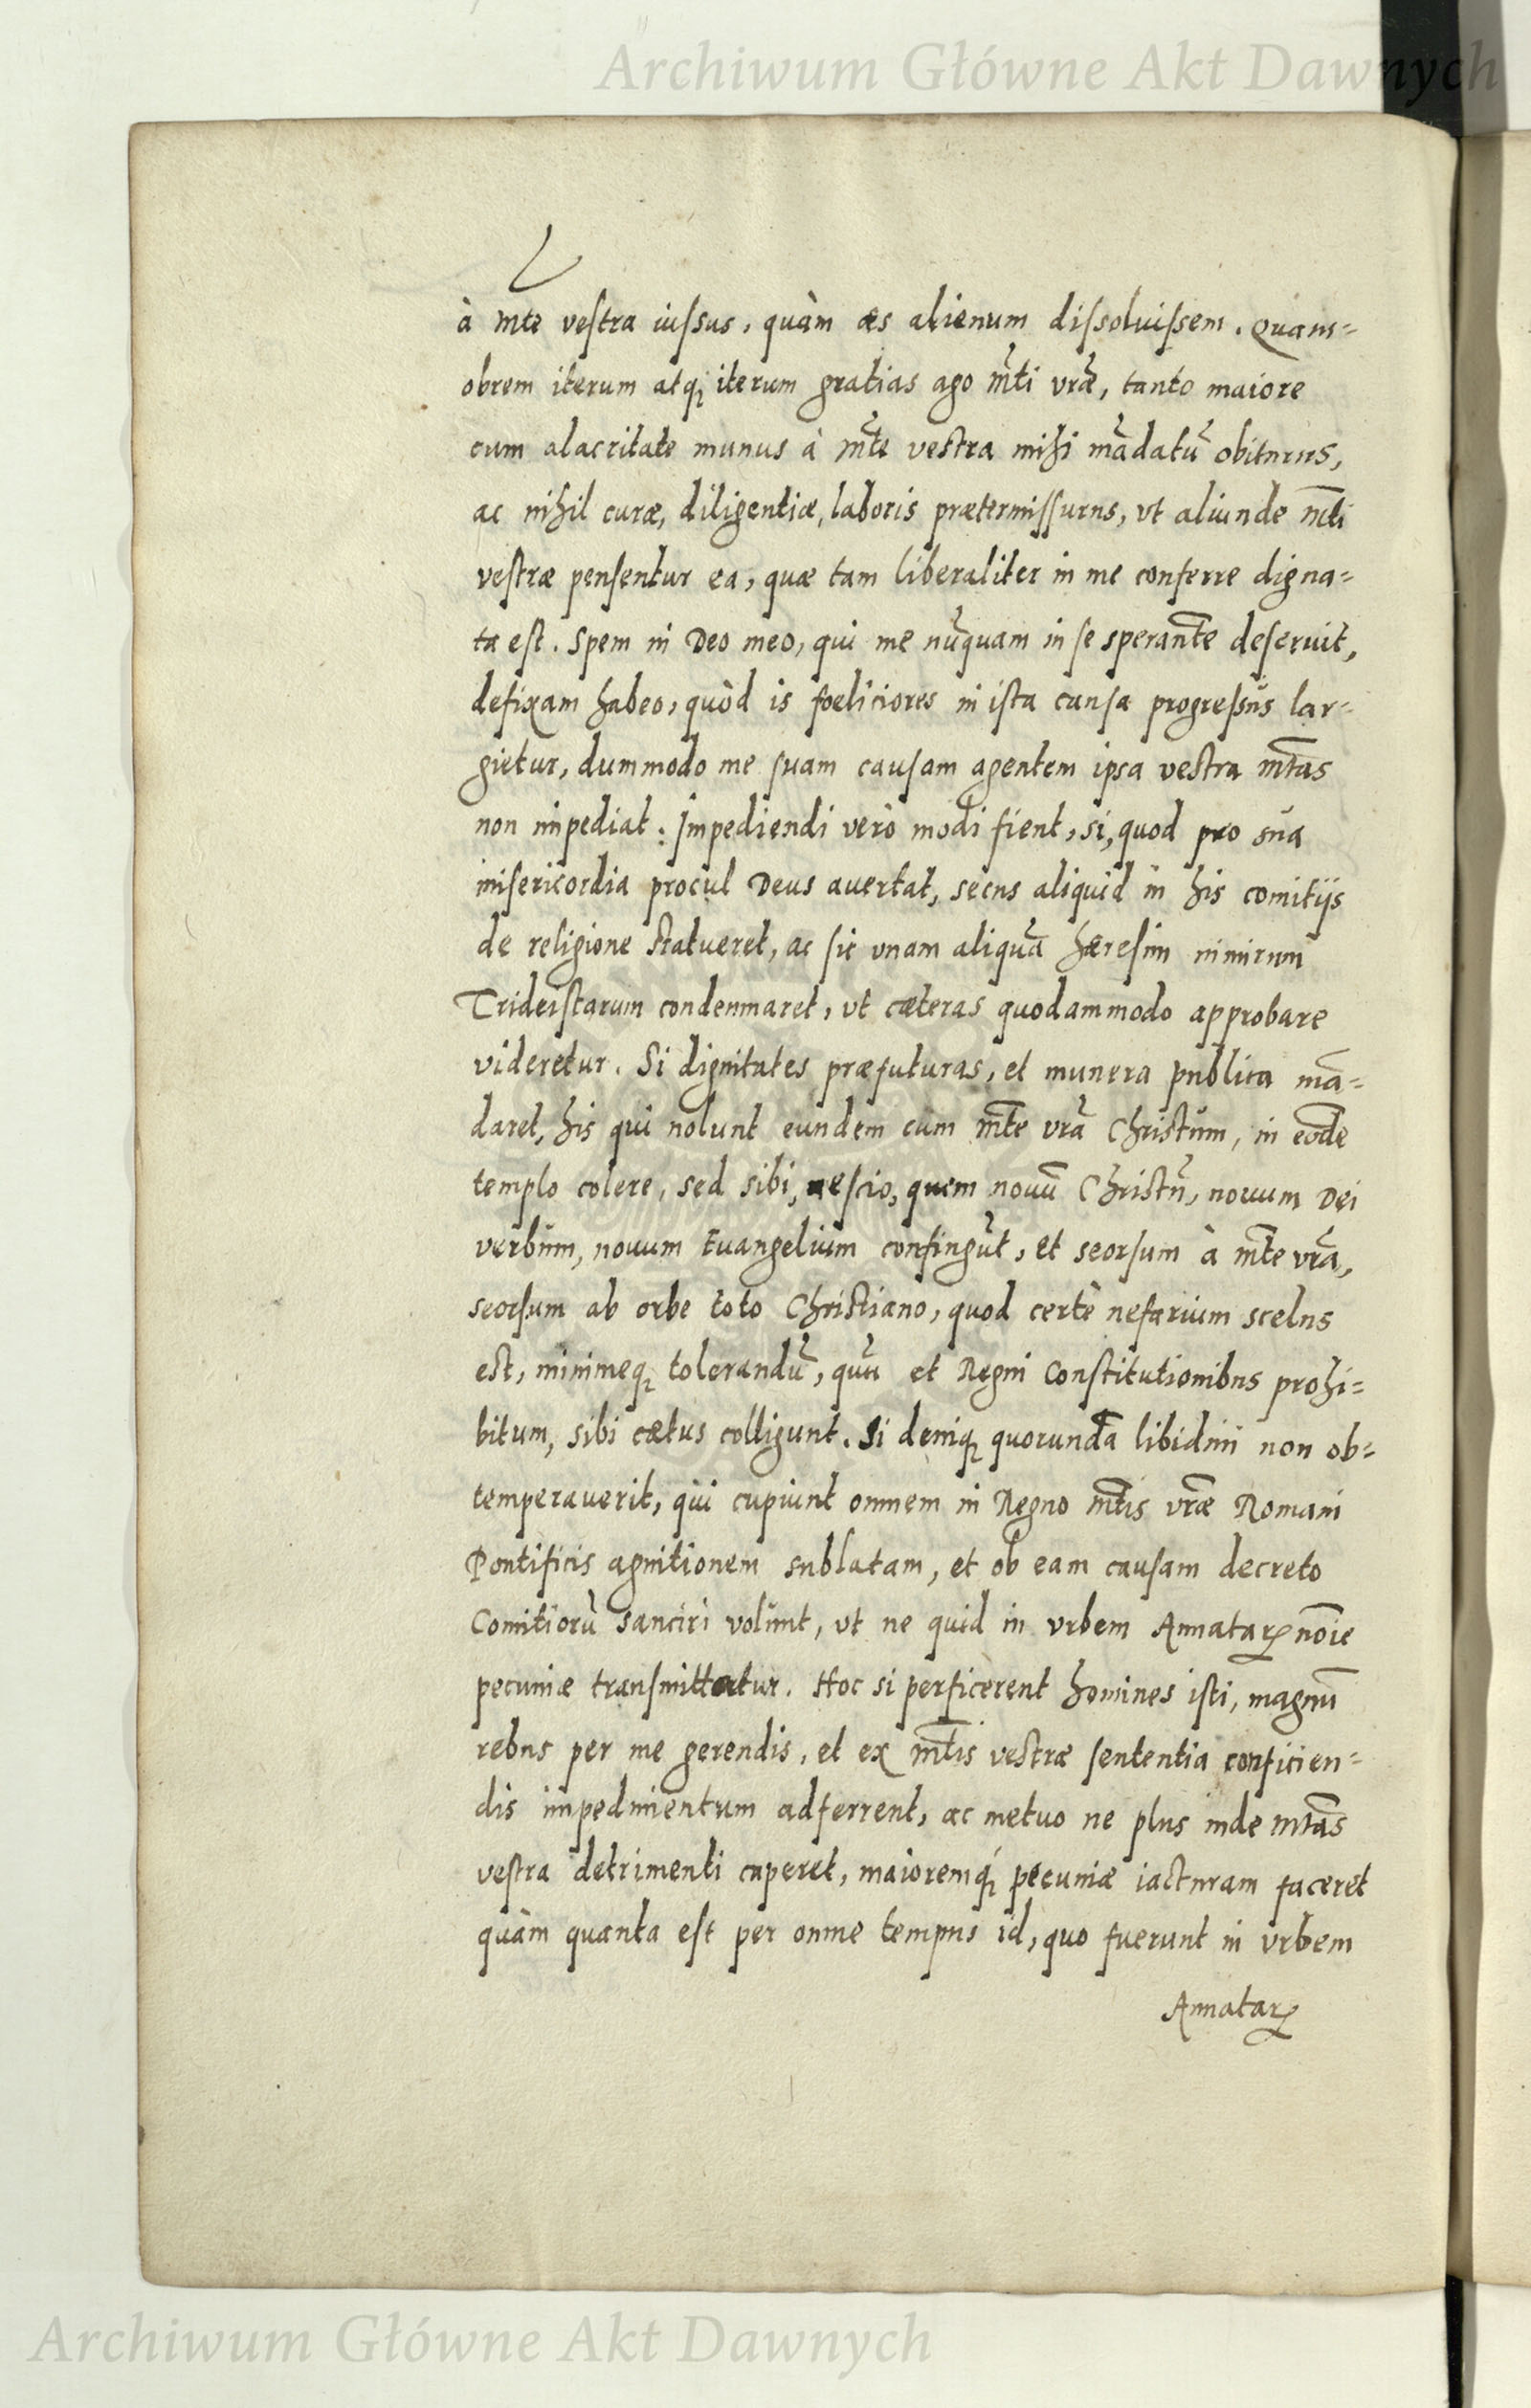 Archiwum Główne Akt Dawnych
à Mte vestra iussus, quàm æs alienum dissoluissem. Quam=
obrem iterum atq; iterum gratias ago M̃ti vr̃æ, tanto maiore
cum alacritate munus à M̃te vestra mihi mãdatũ obiturus,
ac nihil curæ, diligentiæ, laboris prætermissurus, vt aliunde M̃ti
vestræ pensentur ea, quæ tam liberaliter in me conferre digna=
ta est. Spem in Deo meo, qui me nũquam in se sperantẽ deseruit,
defixam habeo, quòd is foeliciores in ista causa progressus lar=
gietur, dummodo me suam causam agentem ipsa vestra M̃tas
non impediat. Impediendi verò modi fient, si, quod pro sua
misericordia procul Deus auertat, secus aliquid in his comitijs
de religione statueret, ac sic vnam aliquã hæresim nimirum
Trideistarum condemnaret, vt cæteras quodammodo approbare
videretur. Si dignitates præfuturas, et munera publica mã=
daret, his qui nolunt eundem cum M̃te vr̃a Christum, in eodẽ
templo colere, sed sibi, nescio, quem nouũ Christũ, nouum Dei
verbum, nouum Euangelium confingũt, et seorsum à M̃te vr̃a,
seorsum ab orbe toto Christiano, quod certè nefarium scelus
est, minimeq; tolerandũ, quũ et Regni Constitutionibus prohi=
bitum, sibi cœtus colligunt. Si deniq; quorundã libidini non ob=
temperauerit, qui cupiunt omnem in Regno M̃tis vr̃æ Romani
Pontificis agnitionem sublatam, et ob eam causam decreto
Comitiorũ sanciri volunt, vt ne quid in vrbem Annataꝝ noĩe
pecuniæ transmittatur. Hoc si perficerent homines isti, magnũ
rebus per me gerendis, et ex M̃tis vestræ sententia conficien=
dis impedimentum adferrent, ac metuo ne plus inde M̃tas
vestra detrimenti caperet, maioremq́; pecuniæ iacturam faceret
quàm quanta est per omne tempus id, quo fuerunt in vrbem
Annataꝝ
Archiwum Główne Akt Dawnych